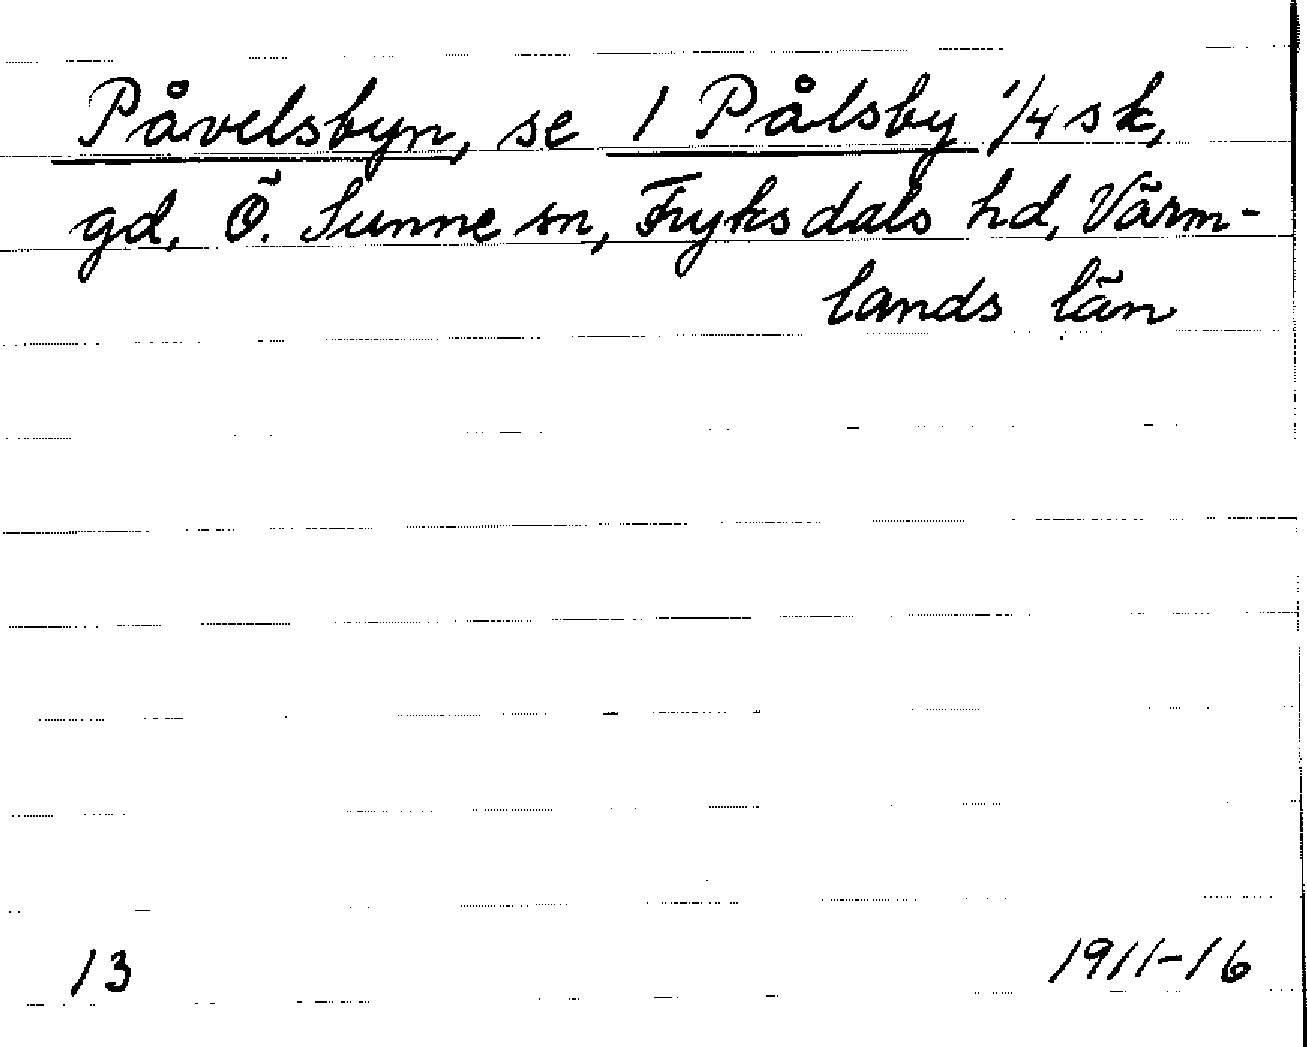 Påvelsbyn, se 1 Pålsby 1/4 sk,
gd, Ö. Sunne sn, Fryksdals hd, Värm-
lands län
13
1911-16